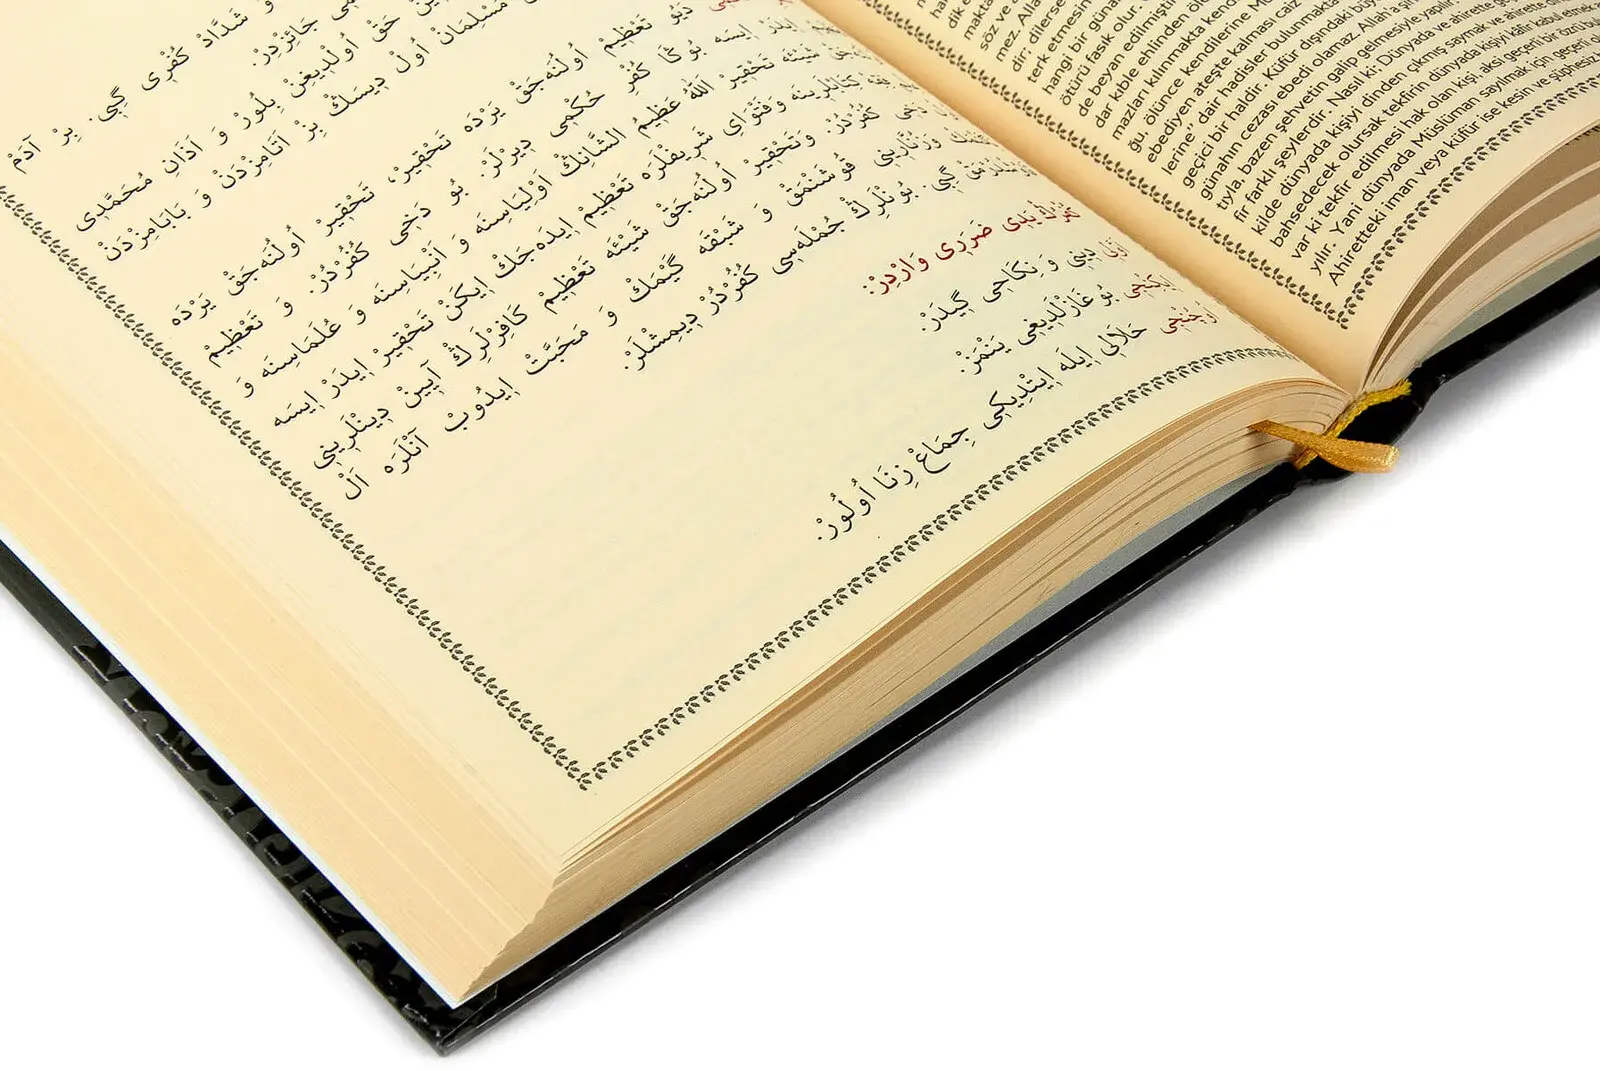 و شَدَّادْ كُفْرِى گِبِى. بِرْ آدَمْ
جَائِزْدِرْ.
حَقْ اُولْدِيغِنْ بِلُورْ وَ اَذَانِ مُحَمَّدِى
مُسْلِمَانْ اُولْ دِيسَكْ بِزْ آتَامِزْدَنْ وَ بَابَامِزْدَنْ
دَيُو تَعْظِيمْ اُولُنَه‌جَقْ يَرْدَه تَحْقِيرْ، تَحْقِيرْ اُولُنَه‌جَقْ يَرْدَه
اِيدَرْ اِيسَه بُوڭَا كُفْرْ حُكْمِى دِيرْلَرْ. بُو دَخِى كُفُرْدُرْ. وَ تَعْظِيمْ
شَيْئِه تَحْقِيرْ اللّٰهُ عَظِيمُ الشَّانِڭْ اَوْلِيَاسِنَه وَ اَنْبِيَاسِنَه وَ عُلَمَاسِنَه وَ
كِتَابْلَرِينَه وَفَتْوَاىِ شَرِيفْلَرَه تَعْظِيمْ اِيدَه‌جَكْ اِيكَنْ تَحْقِيرْ اِيدَرْ اِيسَه
كُفُرْدُرْ. وَتَحْقِيرْ اُولُنَه‌جَقْ شَيْئِه تَعْظِيمْ كَافِرْلَرِڭْ آيِينْ دِينْلَرِينِى
وَزُنَّارِينِى قُوشَنْمَقْ وَ شَبْقَه گَيْمَكْ وَ مَحَبَّتْ اِيدُوبْ آنْلَرَه اَلْ
گِبِى. بُونْلَرِڭْ جُمْلَه‌سِى كُفُرْدُرْ دِيمِشْلَرْ.
كُفْرِڭْ يَدِى ضَرَرِى وَارْدِرْ:
اَوَّلْ دِينِى وَ نِكَاحِى گِيدَرْ.
اِيكِنْجِى بُوغَازْلَدِيغِى يَنْمَزْ.
اُوچُنْجِى حَلَالِى اِيلَه اِيتْدِيكِى جِمَاعْ زِنَا اُولُورْ.
söz ve a
mez. Alla
dir; dilerse
terk etmesin
hangi bir günah
ötürü fasık olur.
de beyan edilmiştir
dar kıble ehlinden öle
mazları kılınmakta kend
ğu, ölünce kendilerine Mü
ebediyen ateşte kalması caiz
lerine" dair hadisler bulunmakta
geçici bir haldir. Küfür dışındaki büy
günahın cezası ebedi olamaz. Allah'a şi
tıyla, bazen şehvetin galip gelmesiyle yapılır
fir farklı şeylerdir. Nasıl ki; Dünyada ve ahirette geç
kilde dünyada kişiyi dinden çıkmış saymak ve ahirette
bahsedecek olursak tekfirin dünyada kişiyi kâfir kabul etmek
var ki tekfir edilmesi hak olan kişi, aksi geçerli bir özrü bu
yılır. Yani dünyada Müslüman sayılmak için geçerli
Ahiretteki iman veya küfür ise kesin ve şüphesiz